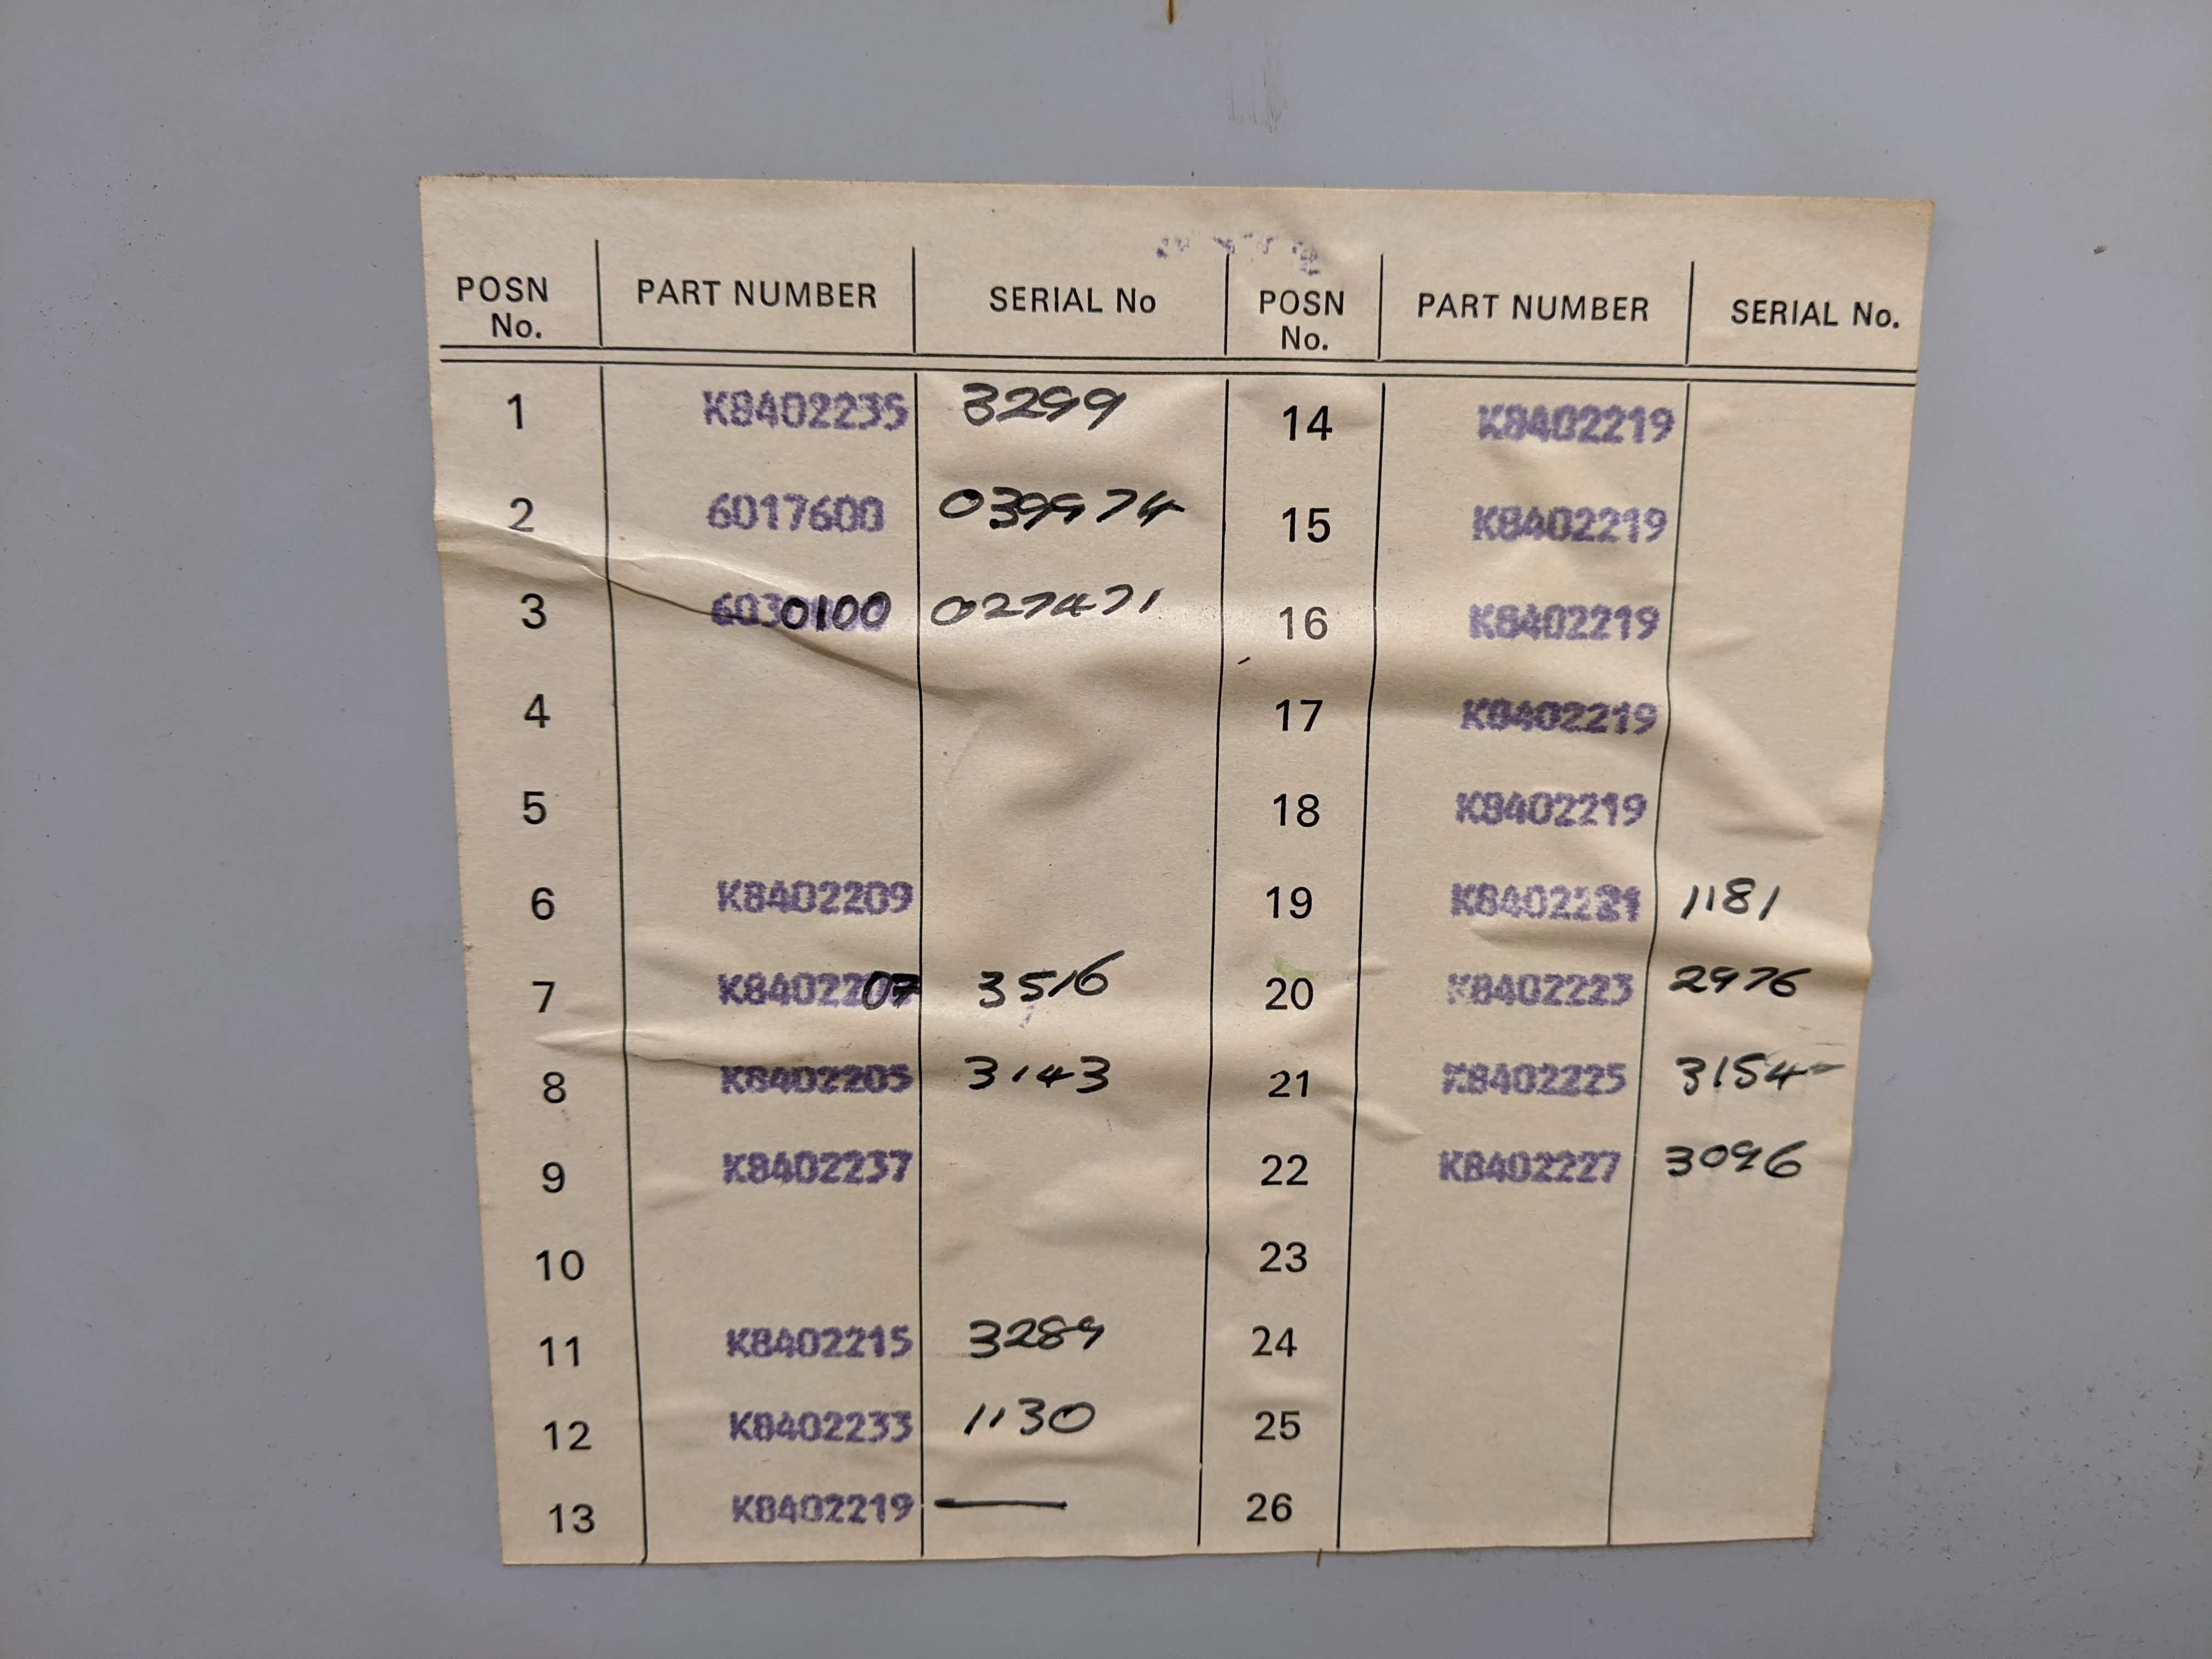 POSN No. PART NUMBER SERIAL No POSN No. PART NUMBER SERIAL No.
1 K8402235 3299 14 K8402219
2 6017600 039974 15 K8402219
3 6030100 027471 16 K8402219
4 17 K8402219
5 18 K8402219
6 K8402209 19 1181
7 K8402207 3516 20 K8402223 2976
8 K8402205 3143 21 K8402225 3154
9 K8402237 22 K8402227 3096
10 23
11 K8402215 3289 24
12 K8402233 1130 25
13 K8402219 — 26